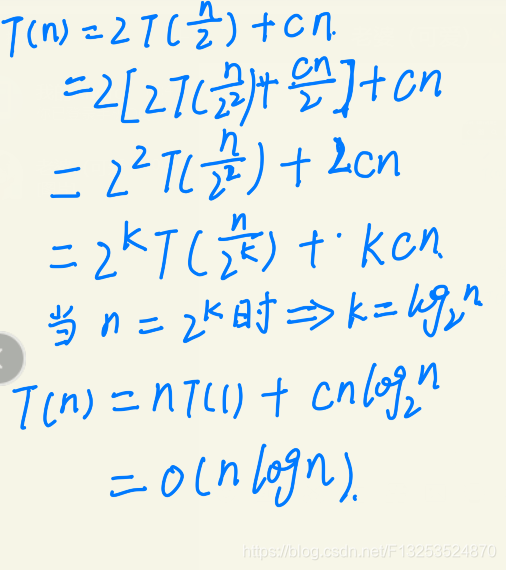 T(n) = 2T(n/2) + cn.
= 2[2T(n/2²) + cn/2] + cn
= 2²T(n/2²) + 2cn
= 2ᵏT(n/2ᵏ) + · kcn
当 n = 2ᵏ时 ⇒ k = log₂n
T(n) = nT(1) + cnlog₂n
= O(nlogn).
https://blog.csdn.net/F13253524870